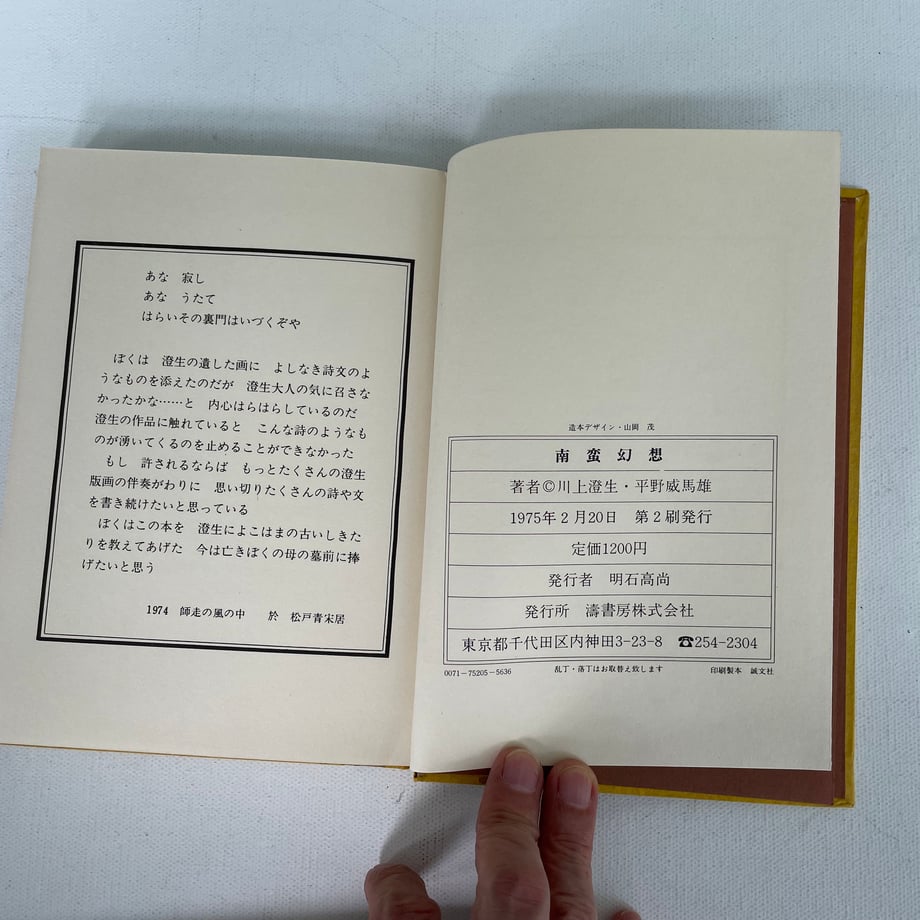 あな　寂し
あな　うたて
はらいその裏門はいづくぞや
ぼくは　澄生の遺した画に　よしなき詩文のよ
うなものを添えたのだが　澄生大人の気に召さな
かったかな……と　内心はらはらしているのだ
澄生の作品に触れていると　こんな詩のようなも
のが湧いてくるのを止めることができなかった
もし　許されるならば　もっとたくさんの澄生
版画の伴奏がわりに　思い切りたくさんの詩や文
を書き続けたいと思っている
ぼくはこの本を　澄生によこはまの古いしきた
りを教えてあげた　今は亡きぼくの母の墓前に捧
げたいと思う
1974　師走の風の中　於　松戸青宋居
造本デザイン・山岡　茂
南蛮幻想
著者©川上澄生・平野威馬雄
1975年2月20日　第2刷発行
定価1200円
発行者　明石高尚
発行所　濤書房株式会社
東京都千代田区内神田3-23-8　☎254-2304
0071-75205-5636　乱丁・落丁はお取替え致します　印刷製本　誠文社